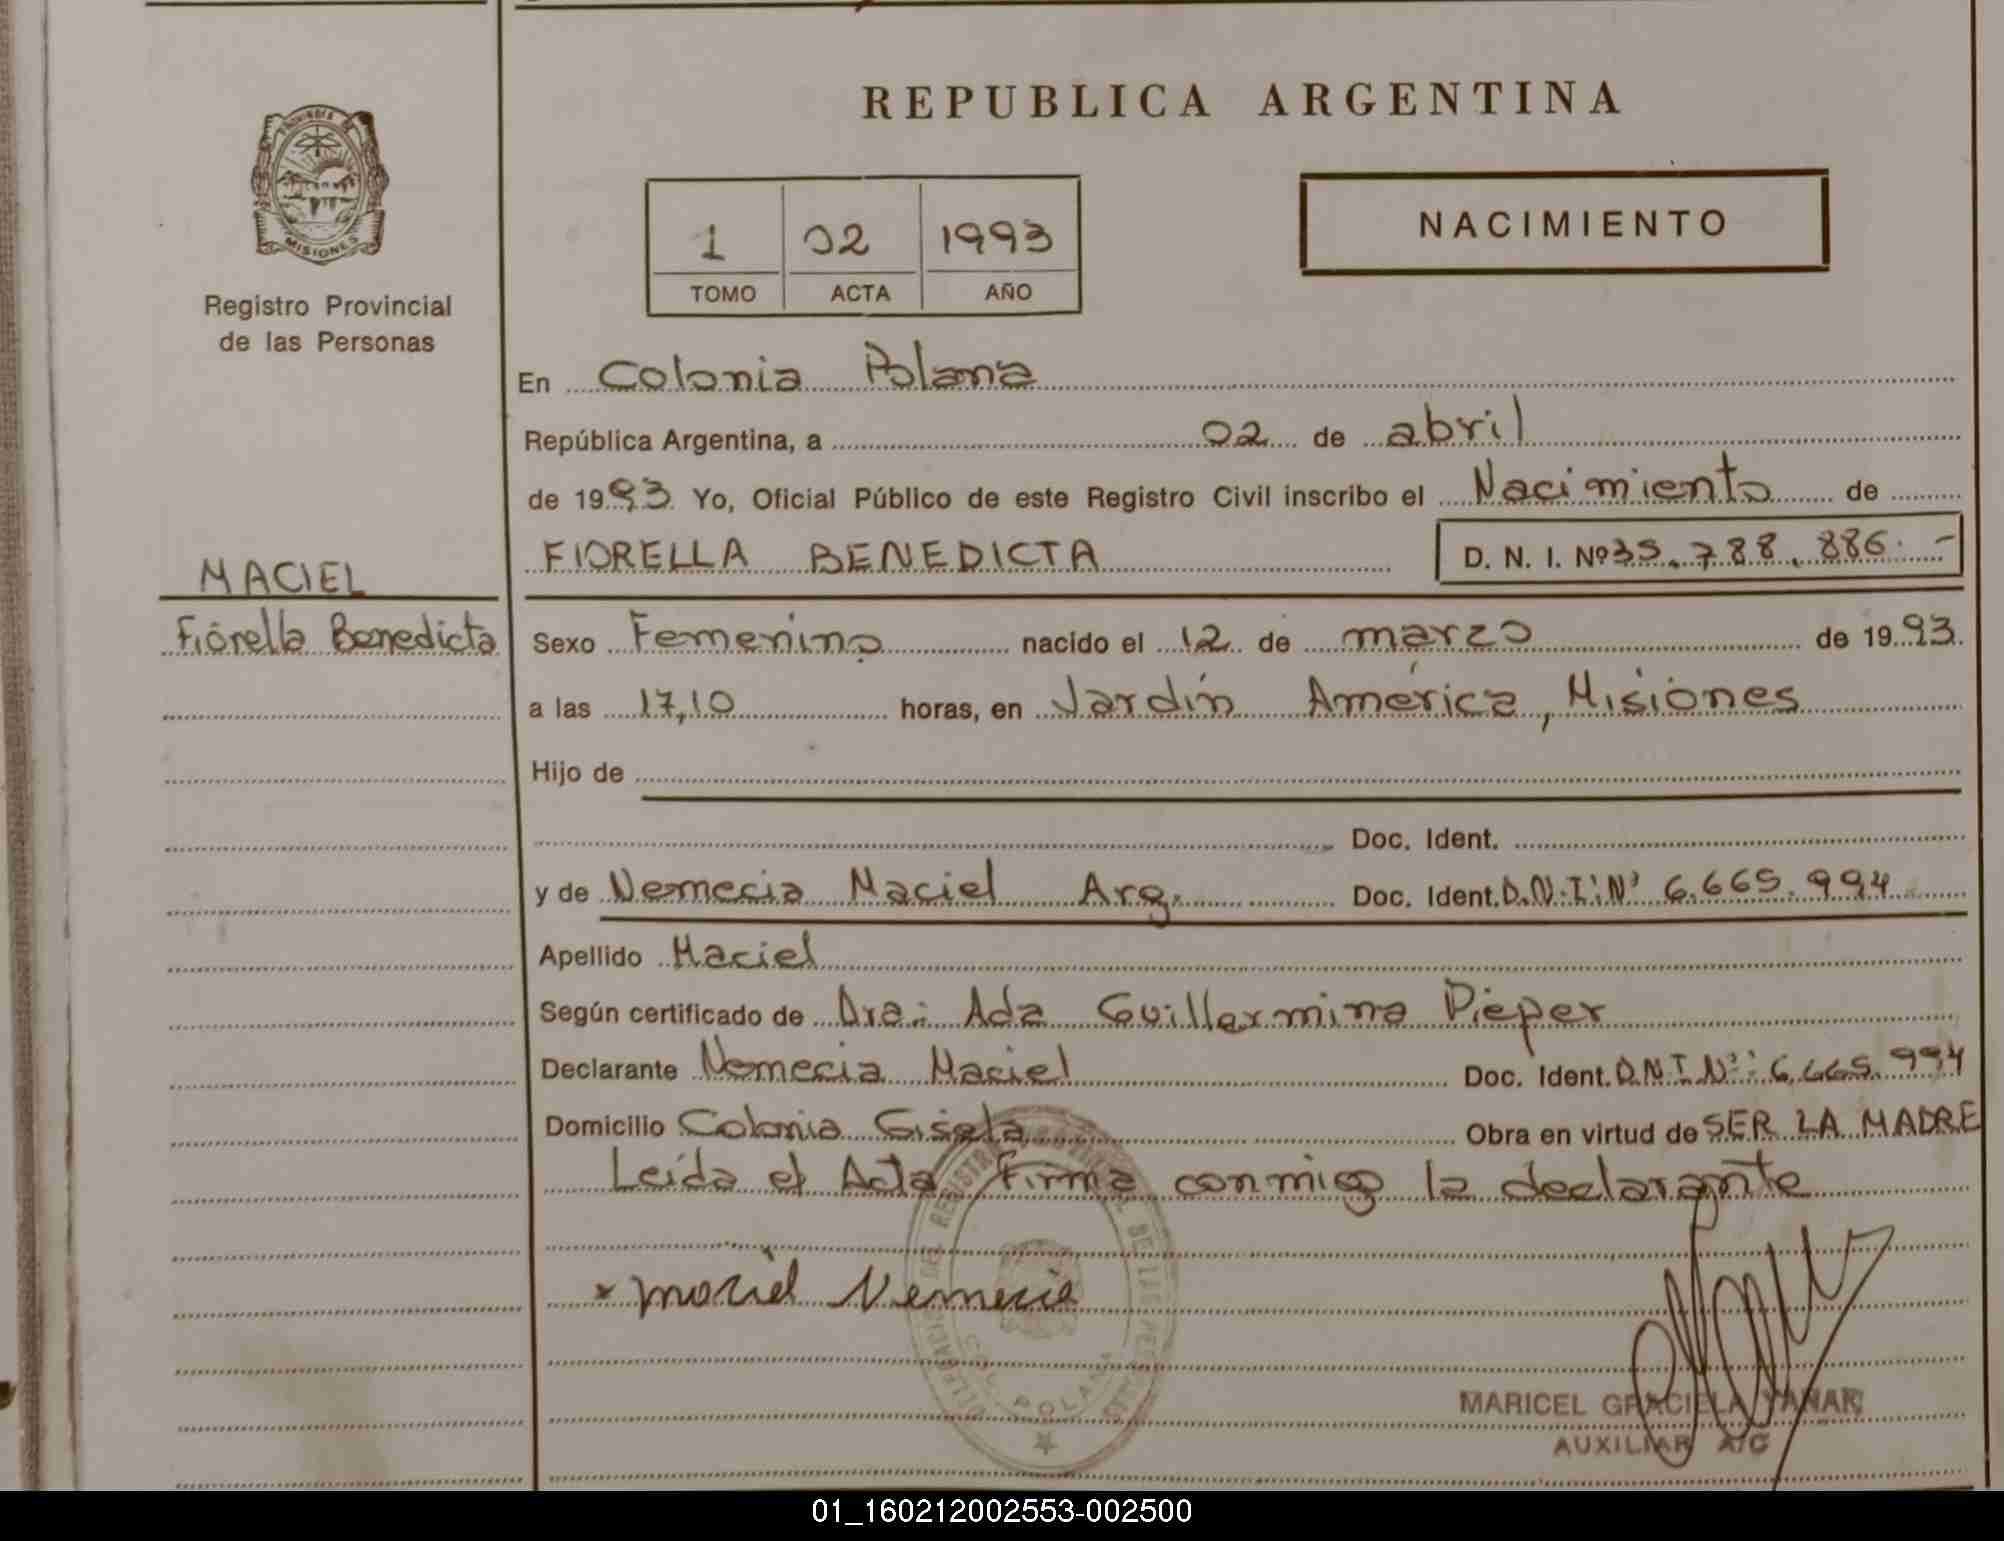 REPUBLICA ARGENTINA
PROVINCIA DE
MISIONES
Registro Provincial
de las Personas
1 02 1993
TOMO ACTA AÑO
NACIMIENTO
En Colonia Polana
República Argentina, a 02 de abril
de 1993 Yo, Oficial Público de este Registro Civil inscribo el Nacimiento de
FIORELLA BENEDICTA D. N. I. Nº 35.788.886.-
MACIEL
Fiorella Benedicta
Sexo Femenino nacido el 12 de marzo de 1993.
a las 17,10 horas, en Jardín América, Misiones
Hijo de
Doc. Ident.
y de Nemecia Maciel Arg. Doc. Ident. D.N.I. Nº 6.665.994
Apellido Maciel
Según certificado de Dra: Ada Guillermina Pieper
Declarante Nemecia Maciel Doc. Ident. D.N.I Nº: 6.665.994
Domicilio Colonia Gisela Obra en virtud de SER LA MADRE
Leída el Acta Firma conmigo la declarante
x Maciel Nemecia
COL. POLANA
MARICEL GRACIELA YANAK
AUXILIAR A/C
01_160212002553-002500